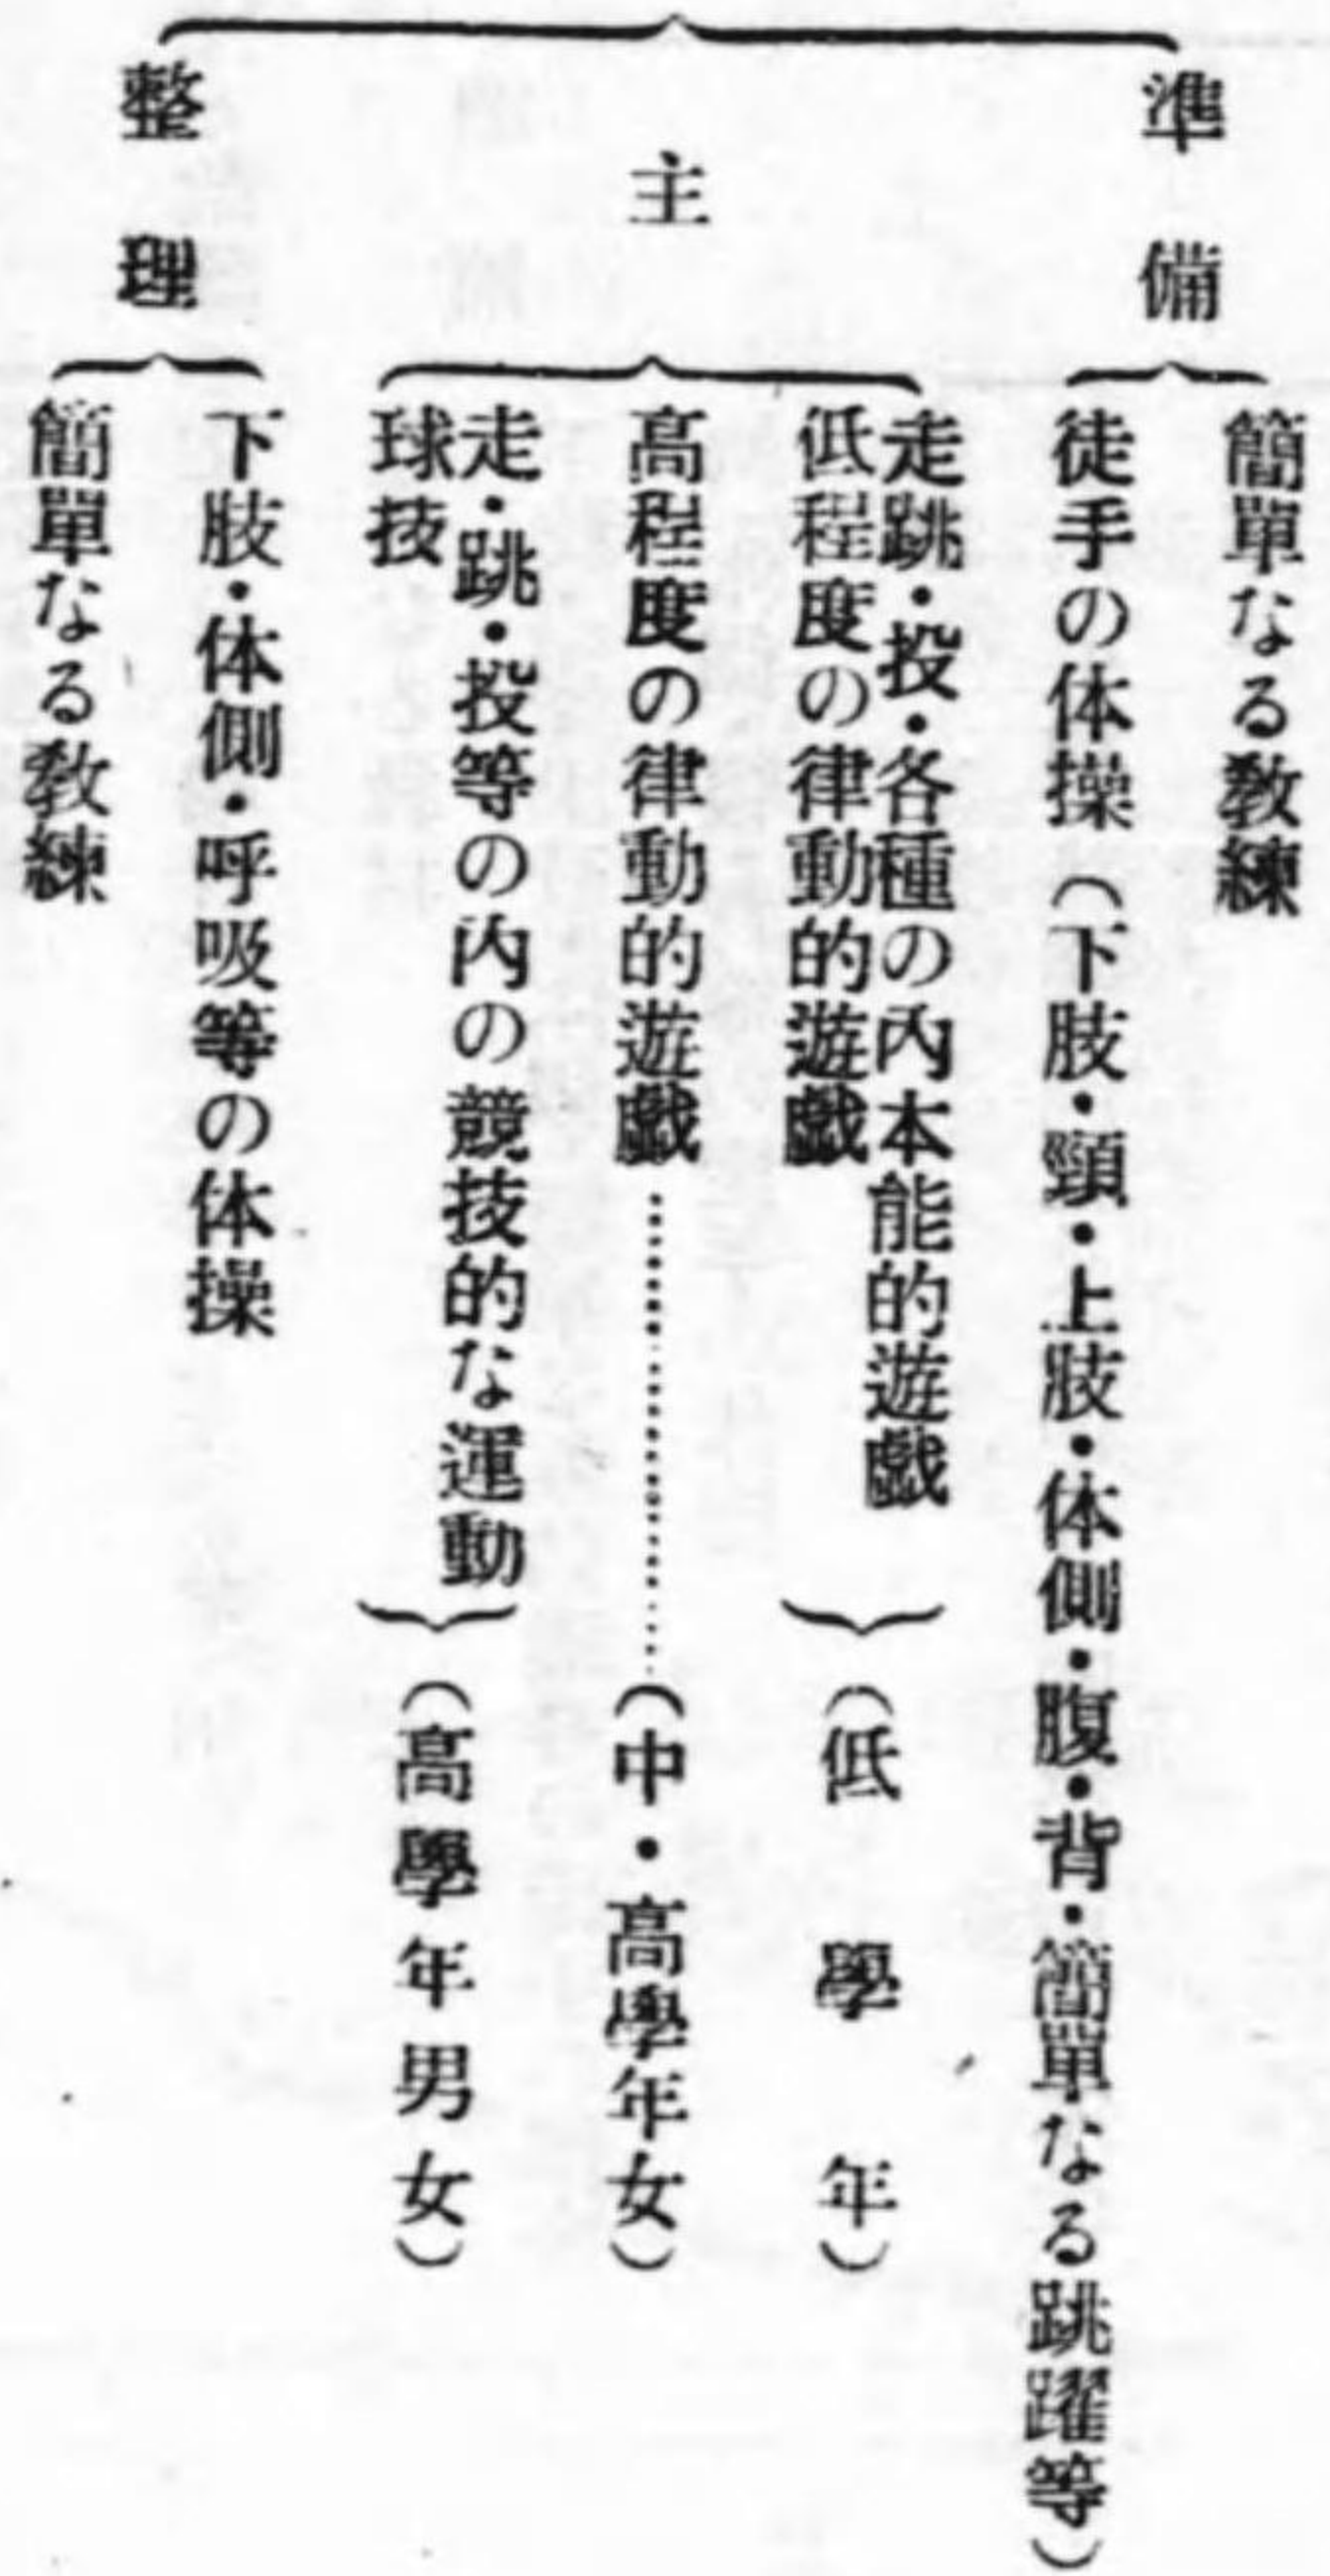 準備
簡單なる教練
徒手の体操（下肢・頸・上肢・体側・腹・背・簡單なる跳躍等）
主
走跳・投・各種の內本能的遊戯
低程度の律動的遊戯
（低學年）
高程度の律動的遊戯……………（中・高學年女）
走・跳・投等の內の競技的な運動
球技
（高學年男女）
整理
下肢・体側・呼吸等の体操
簡單なる教練